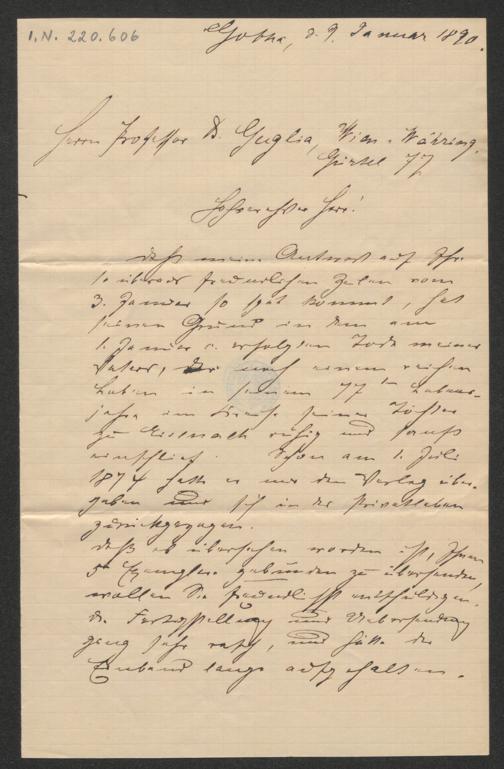 I.N. 220.606
Gotha, d. 9. Januar 1890.
Herrn Professor Dr. Guglia, Wien-Währing,
Gürtel 77
Hochverehrter Herr!
Daß meine Antwort auf Ihre
so überaus freundlichen Zeilen vom
3. Januar so spät kommt, hat
seinen Grund in dem am
1. Januar c. erfolgten Tode meines
Vaters, der nach einem reichen
Leben in seinem 77ten Lebens-
jahre im Kreise seiner Töchter
zu Eisenach ruhig und sanft
einschlief. Schon am 1. Juli
1874 hatte er mir den Verlag über-
geben und sich in das Privatleben
zurückgezogen.
Daß es übersehen worden ist, Ihnen
5 Exemplare gebunden zu übersenden,
wollen Sie freundlichst entschuldigen.
Die Fertigstellung und Uebersendung
ging sehr rasch, und hätte der
Einband lange aufgehalten.